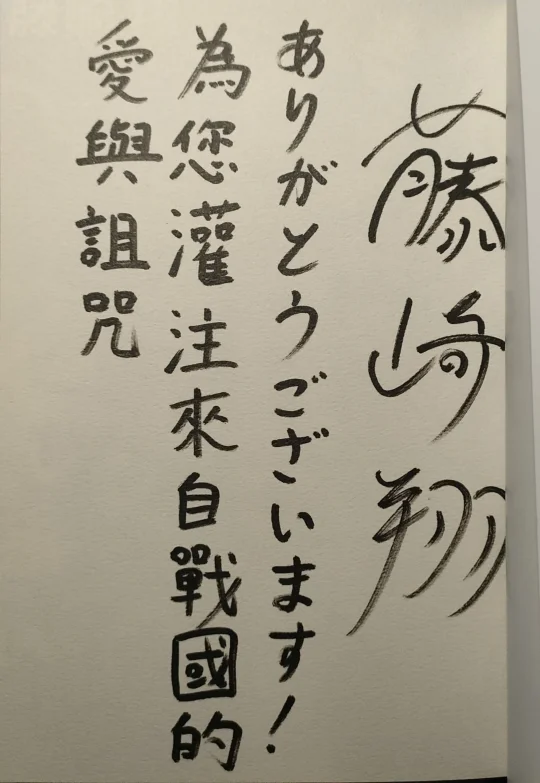 藤崎翔
ありがとうございます！
為您灌注來自戰國的
愛與詛咒